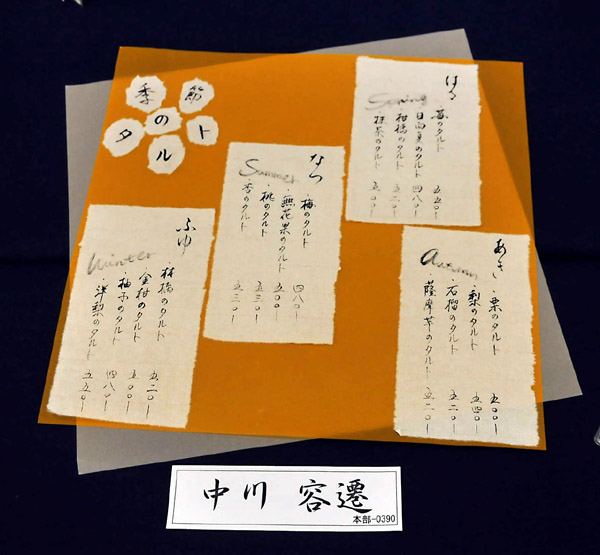 季節
のタルト
はる
Spring
・苺のタルト 五五〇ー
・日向夏のタルト 四八〇ー
・柑橘のタルト 五二〇ー
のタルト 五〇〇ー
なつ
Summer
・梅のタルト 四八〇ー
・無花果のタルト 五〇〇ー
・桃のタルト 五三〇ー
・杏のタルト 五三〇ー
あき
Autumn
・栗のタルト 五〇〇ー
・梨のタルト 五四〇ー
・石榴のタルト 五二〇ー
・薩摩芋のタルト 五二〇ー
ふゆ
Winter
・林檎のタルト 五二〇ー
・金柑のタルト 五〇〇ー
・柚子のタルト 四八〇ー
・洋梨のタルト 五五〇ー
中川 容遷
本部-0390